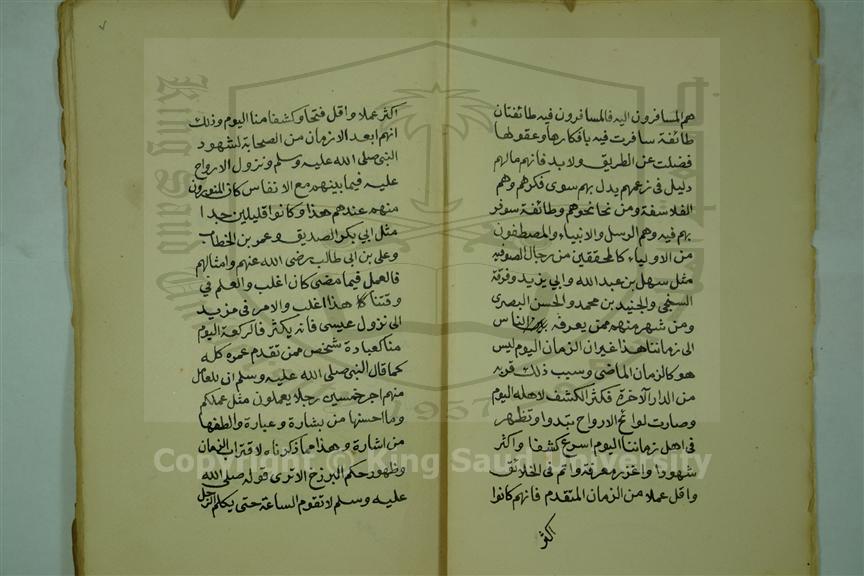 هم المسافرون اليه فالمسافرون فيه طائفتان
طائفة سافرت فيه بافكارها وعقولها
فضلت عن الطريق ولابد فانهم مالهم
دليل في زعمهم يدل بهم سوى فكرهم وهم
الفلاسفة ومن نحا نحوهم وطائفة سوفر
بهم فيه وهم الرسل والانبياء والمصطفون
من الاولياء كالمحققين من رجال الصوفيه
مثل سهل بن عبد الله وابي يزيد وفرقد
السبخي والجنيد بن محمد والحسن البصرى
ومن شهر منهم ممن يعرفه الناس
الى زماننا هذا غير ان الزمان اليوم ليس
هو كالزمان الماضى وسبب ذلك قربه
من الدار الآخرة فكثر الكشف لاهله اليوم
وصارت لوائح الارواح تبدوا وتظهر
فى اهل زماننا اليوم اسرع كشفا واكثر
شهودا واغزر معرفة واتم فى الحقائق
واقل عملا من الزمان المتقدم فانهم كانوا
اكثر
٧
اكثر عملا واقل فتحا وكشفا منا اليوم وذلك
انهم ابعد الازمان من الصحابة لشهود
النبي صلى الله عليه وسلم ونزول الارواح
عليه فيما بينهم مع الانفاس كان المنورون
منهم عندهم هذا وكانوا قليلين جدا
مثل ابي بكر الصديق وعمر بن الخطاب
وعلى بن ابى طالب رضى الله عنهم وامثالهم
فالعمل فيما مضى كان اغلب والعلم في
وقتنا هذا اغلب والامر في مزيد
الى نزول عيسى فانه يكثر فالركعة اليوم
منا كعبادة شخص ممن تقدم عمره كله
كما قال النبي صلى الله عليه وسلم ان للعامل
منهم اجر خمسين رجلا يعملون مثل عملكم
وما احسنها من بشارة وعبارة والطفها
من اشارة وهذا مما ذكرناه لاقتراب الزمان
وظهور حكم البرزخ الا ترى قوله صلى الله
عليه وسلم لا تقوم الساعة حتى يكلم الرجل
King Saud University
1957
Copyright © King Saud University